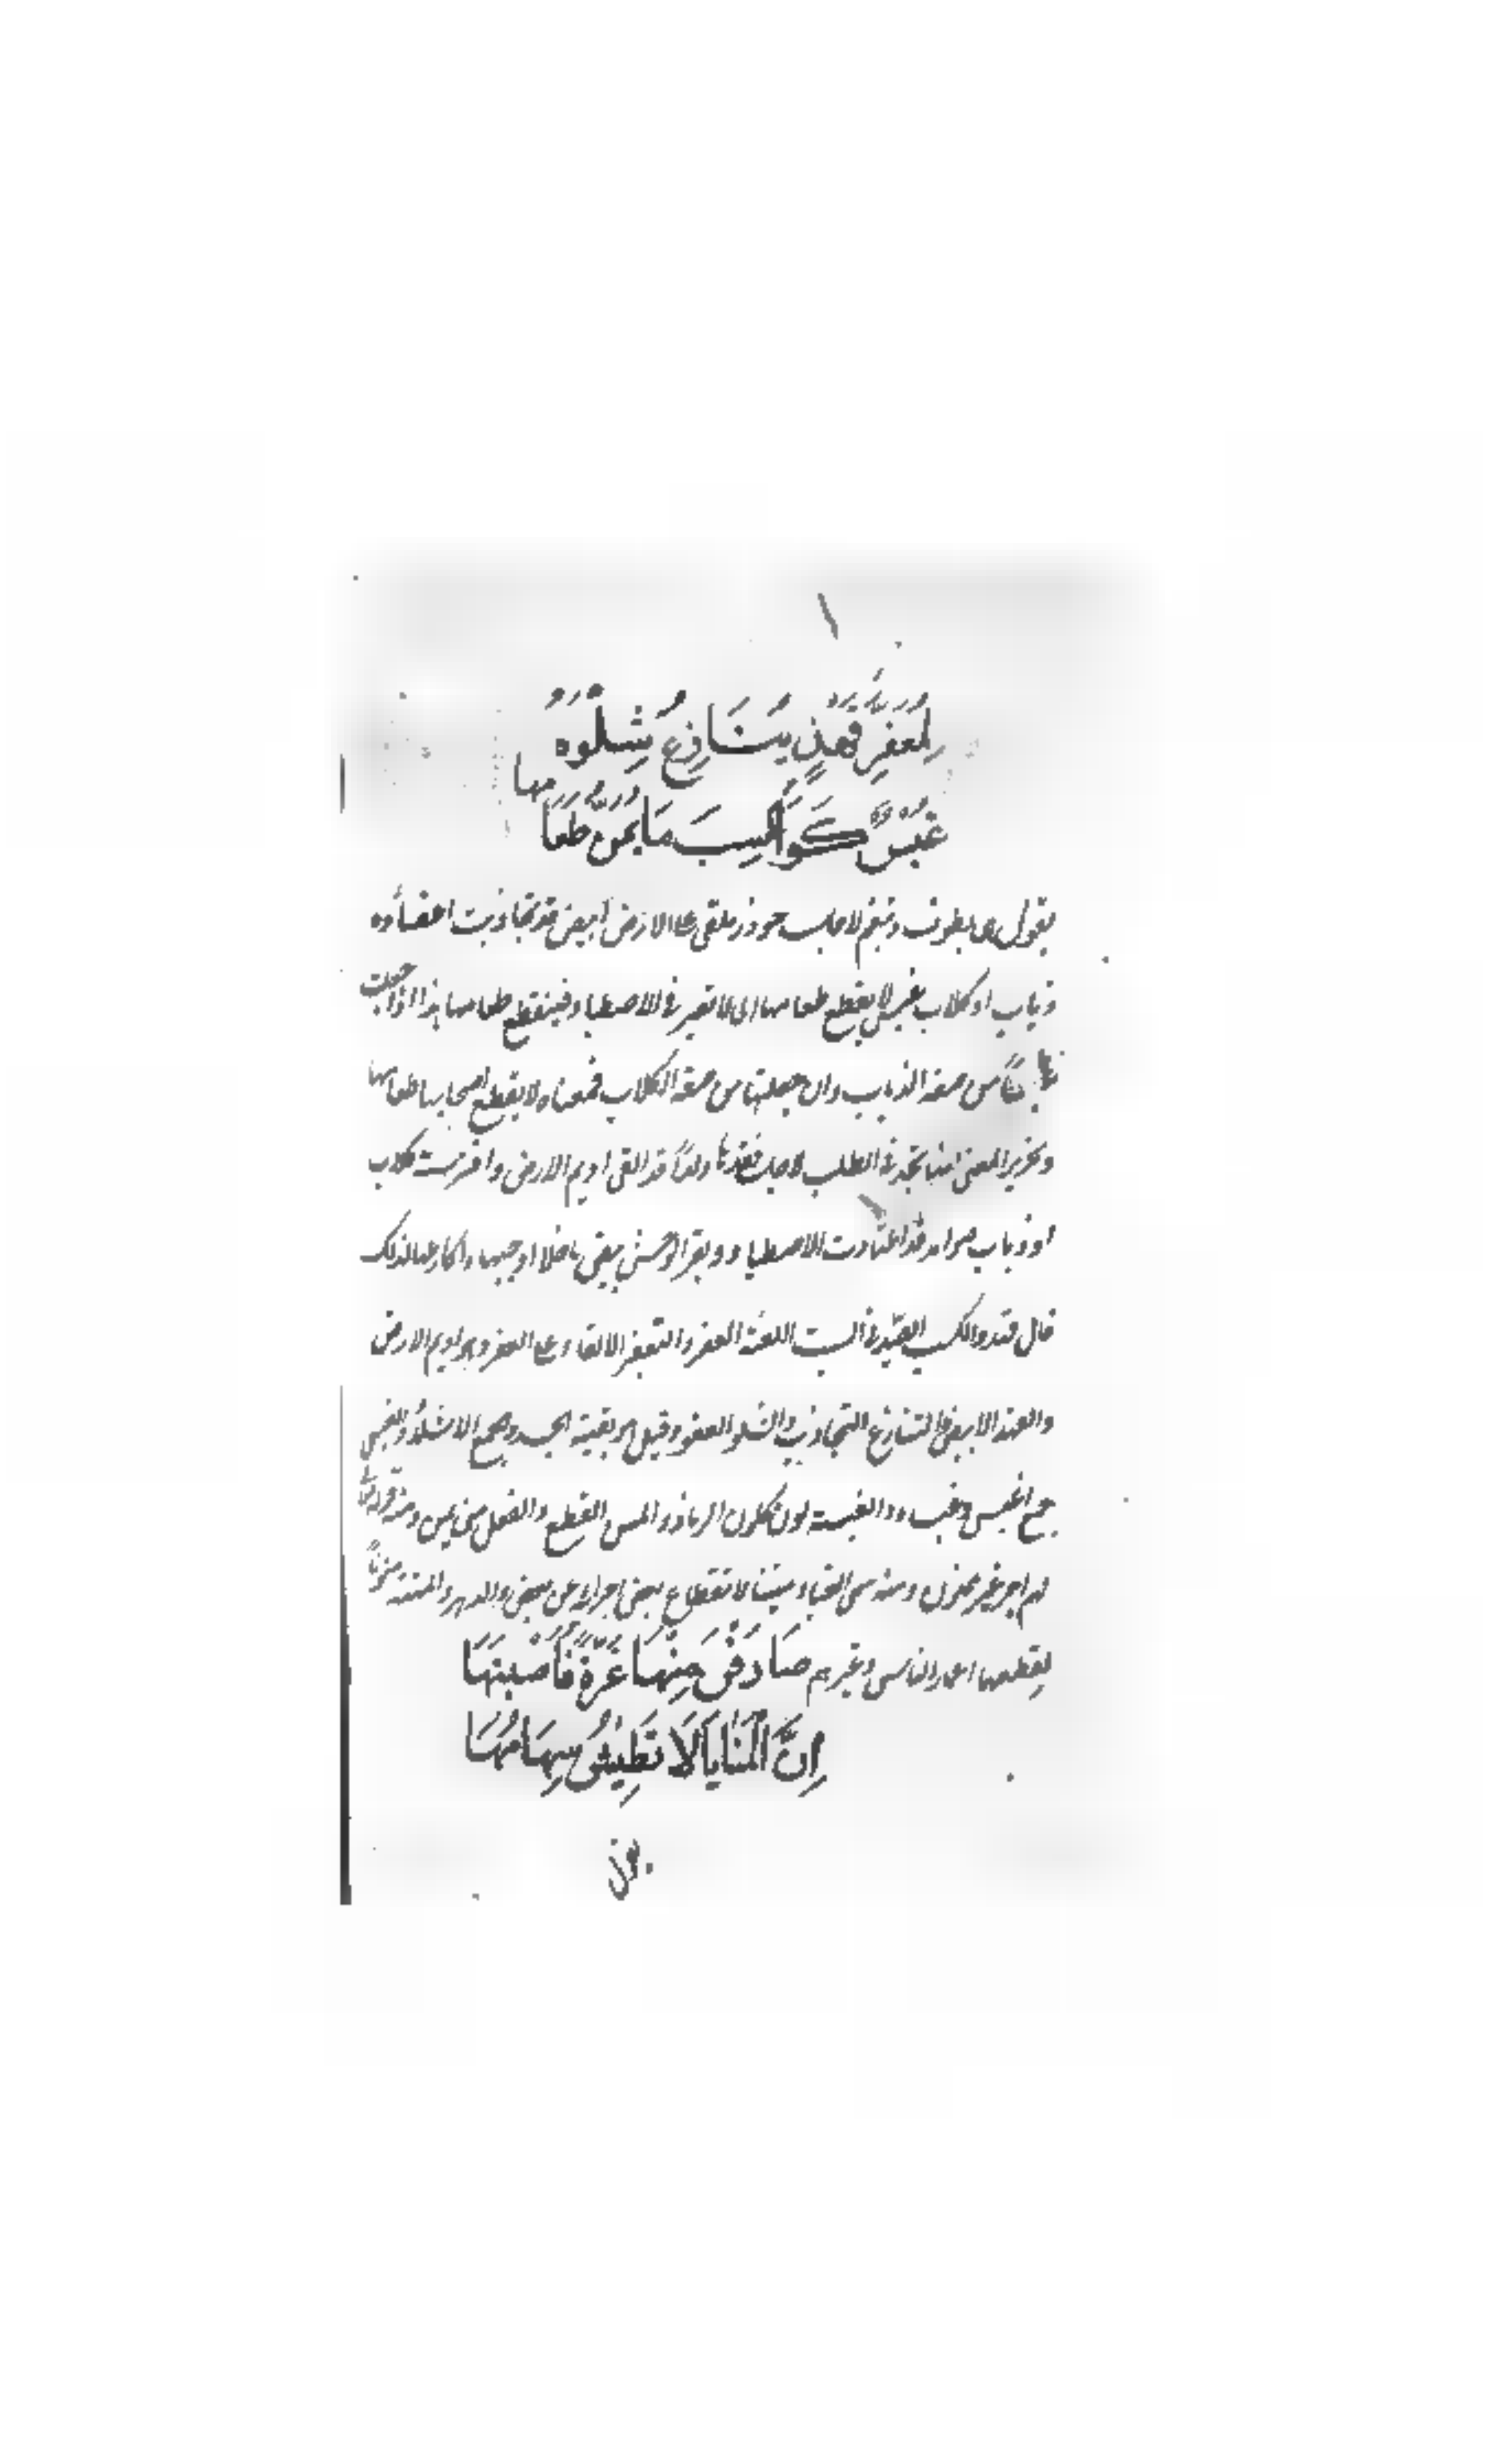 لِمُعَفَّرٍ قَهْدٍ يُنَازِعُ شِلْوَهُ
غُبْسٌ كَوَاسِبُ مَا يُمَنُّ طَعَامُهَا
يقول هى تطوف وتبغم لاجل جوذر ملقى على الارض ابيض قد تجاذبت اعضاءه
ذياب او كلاب غبس لا يقطع طعامها اى لا تفتر فى الاصطياد فينقطع طعامها هذا اذا جعلت
غبسا من صفة الذياب وان جعلتها من صفة الكلاب فمعناه لا يقطع اصحابها طعامها
وتحرير المعنى انها تجد فى الطلب لاجل فقدها ولدا قد القى اديم الارض وافترسته كلاب
او ذياب صوائد قد اعتادت الاصطياد وبقر الوحش بيض ما خلا اوجهها واكارعها لذلك
قال قهد والكسب الصيد فى البيت اللغة العفر والتعفير الالقاء على العفر وهو اديم الارض
والقهد الابيض والتنازع التجاذب والشلو العضو وقيل هو بقية الجسد وجمع الاشلاء والغبس
جمع اغبس وغبساء والغبسة لون كلون الرماد والمن القطع والفعل من يمن ومنه قوله تعالى
لهم اجر غير ممنون ومنه سمى الغبار منينا لانقطاع بعض اجزائه عن بعض والدهر والمنية منونا
لقطعهما اعمار الناس وغيرهم صَادَفْنَ مِنْهَا غِرَّةً فَأَصَبْنَهَا
إِنَّ الْمَنَايَا لَا تَطِيشُ سِهَامُهَا